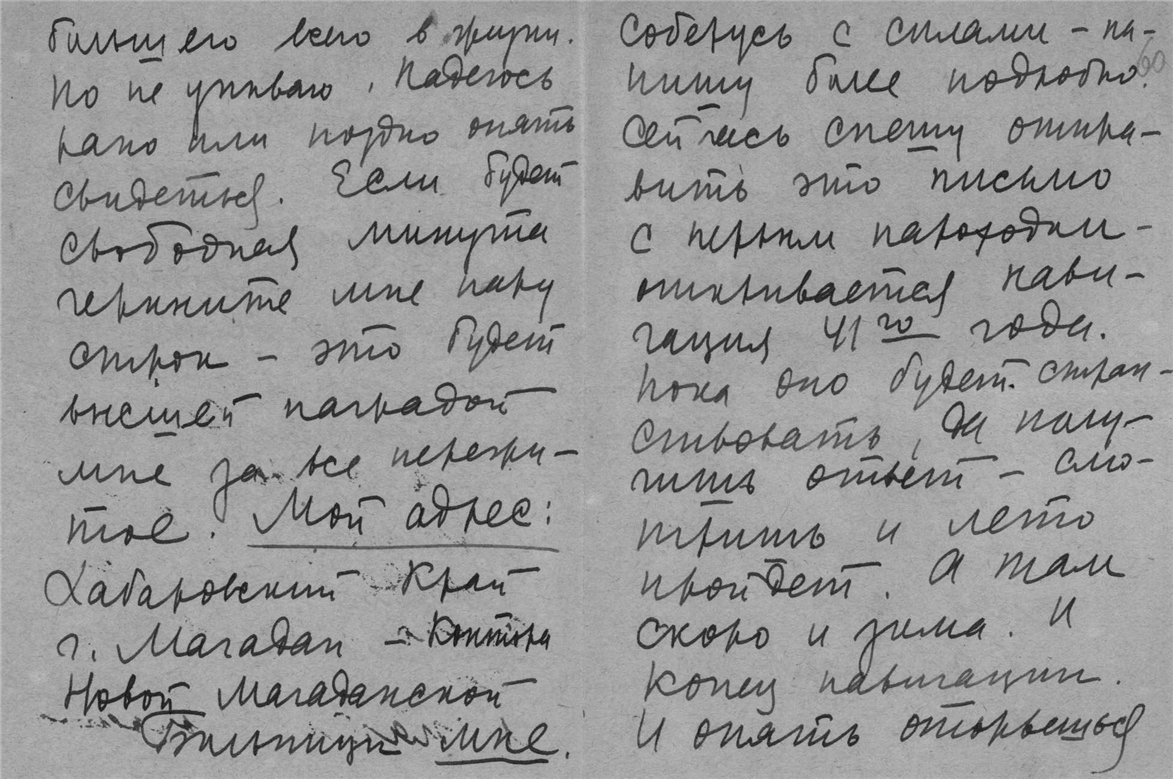 больше его всего в жизни.
Но не унываю. Надеюсь
рано или поздно опять
свидеться. Если будет
свободная минута
черкните мне пару
строк – это будет
высшей наградой
мне за все пережи-
тое. Мой адрес:
Хабаровский Край
г. Магадан – Контора
Новой Магаданской
Больницы мне.
соберусь с силами – на-
пишу более подробно.
60
Сейчась спешу отпра-
вить это письмо
с первым пароходом –
открывается нави-
гация 41го года.
Пока оно будет стран-
ствовать, да полу-
чишь ответ – смо-
тришь и лето
пройдет. А там
скоро и зима. И
конец навигации.
И опять оторвешься